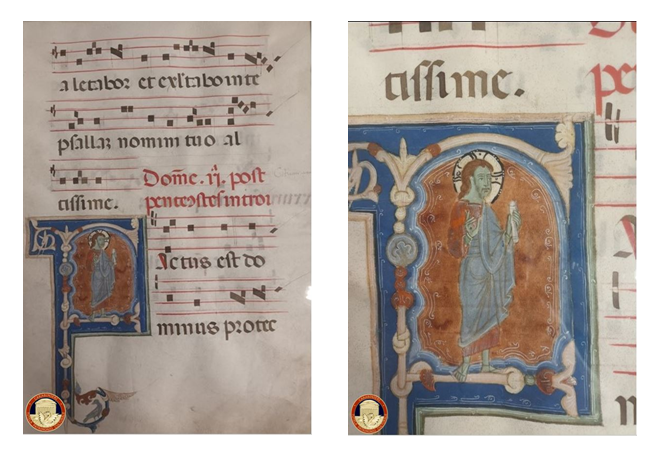 a letabor et exltabo in te
psallam nomini tuo al
tissime. Dom̄e. ij. post
pentecostes introi
Actus est do
minus protec
tissime.
pe